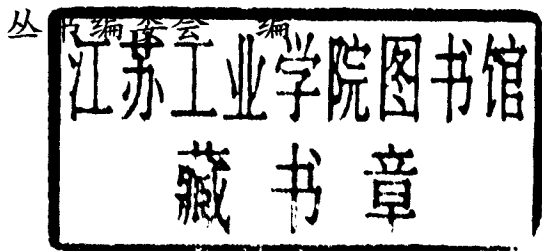 丛书编委会 编
江苏工业学院图书馆
藏书章